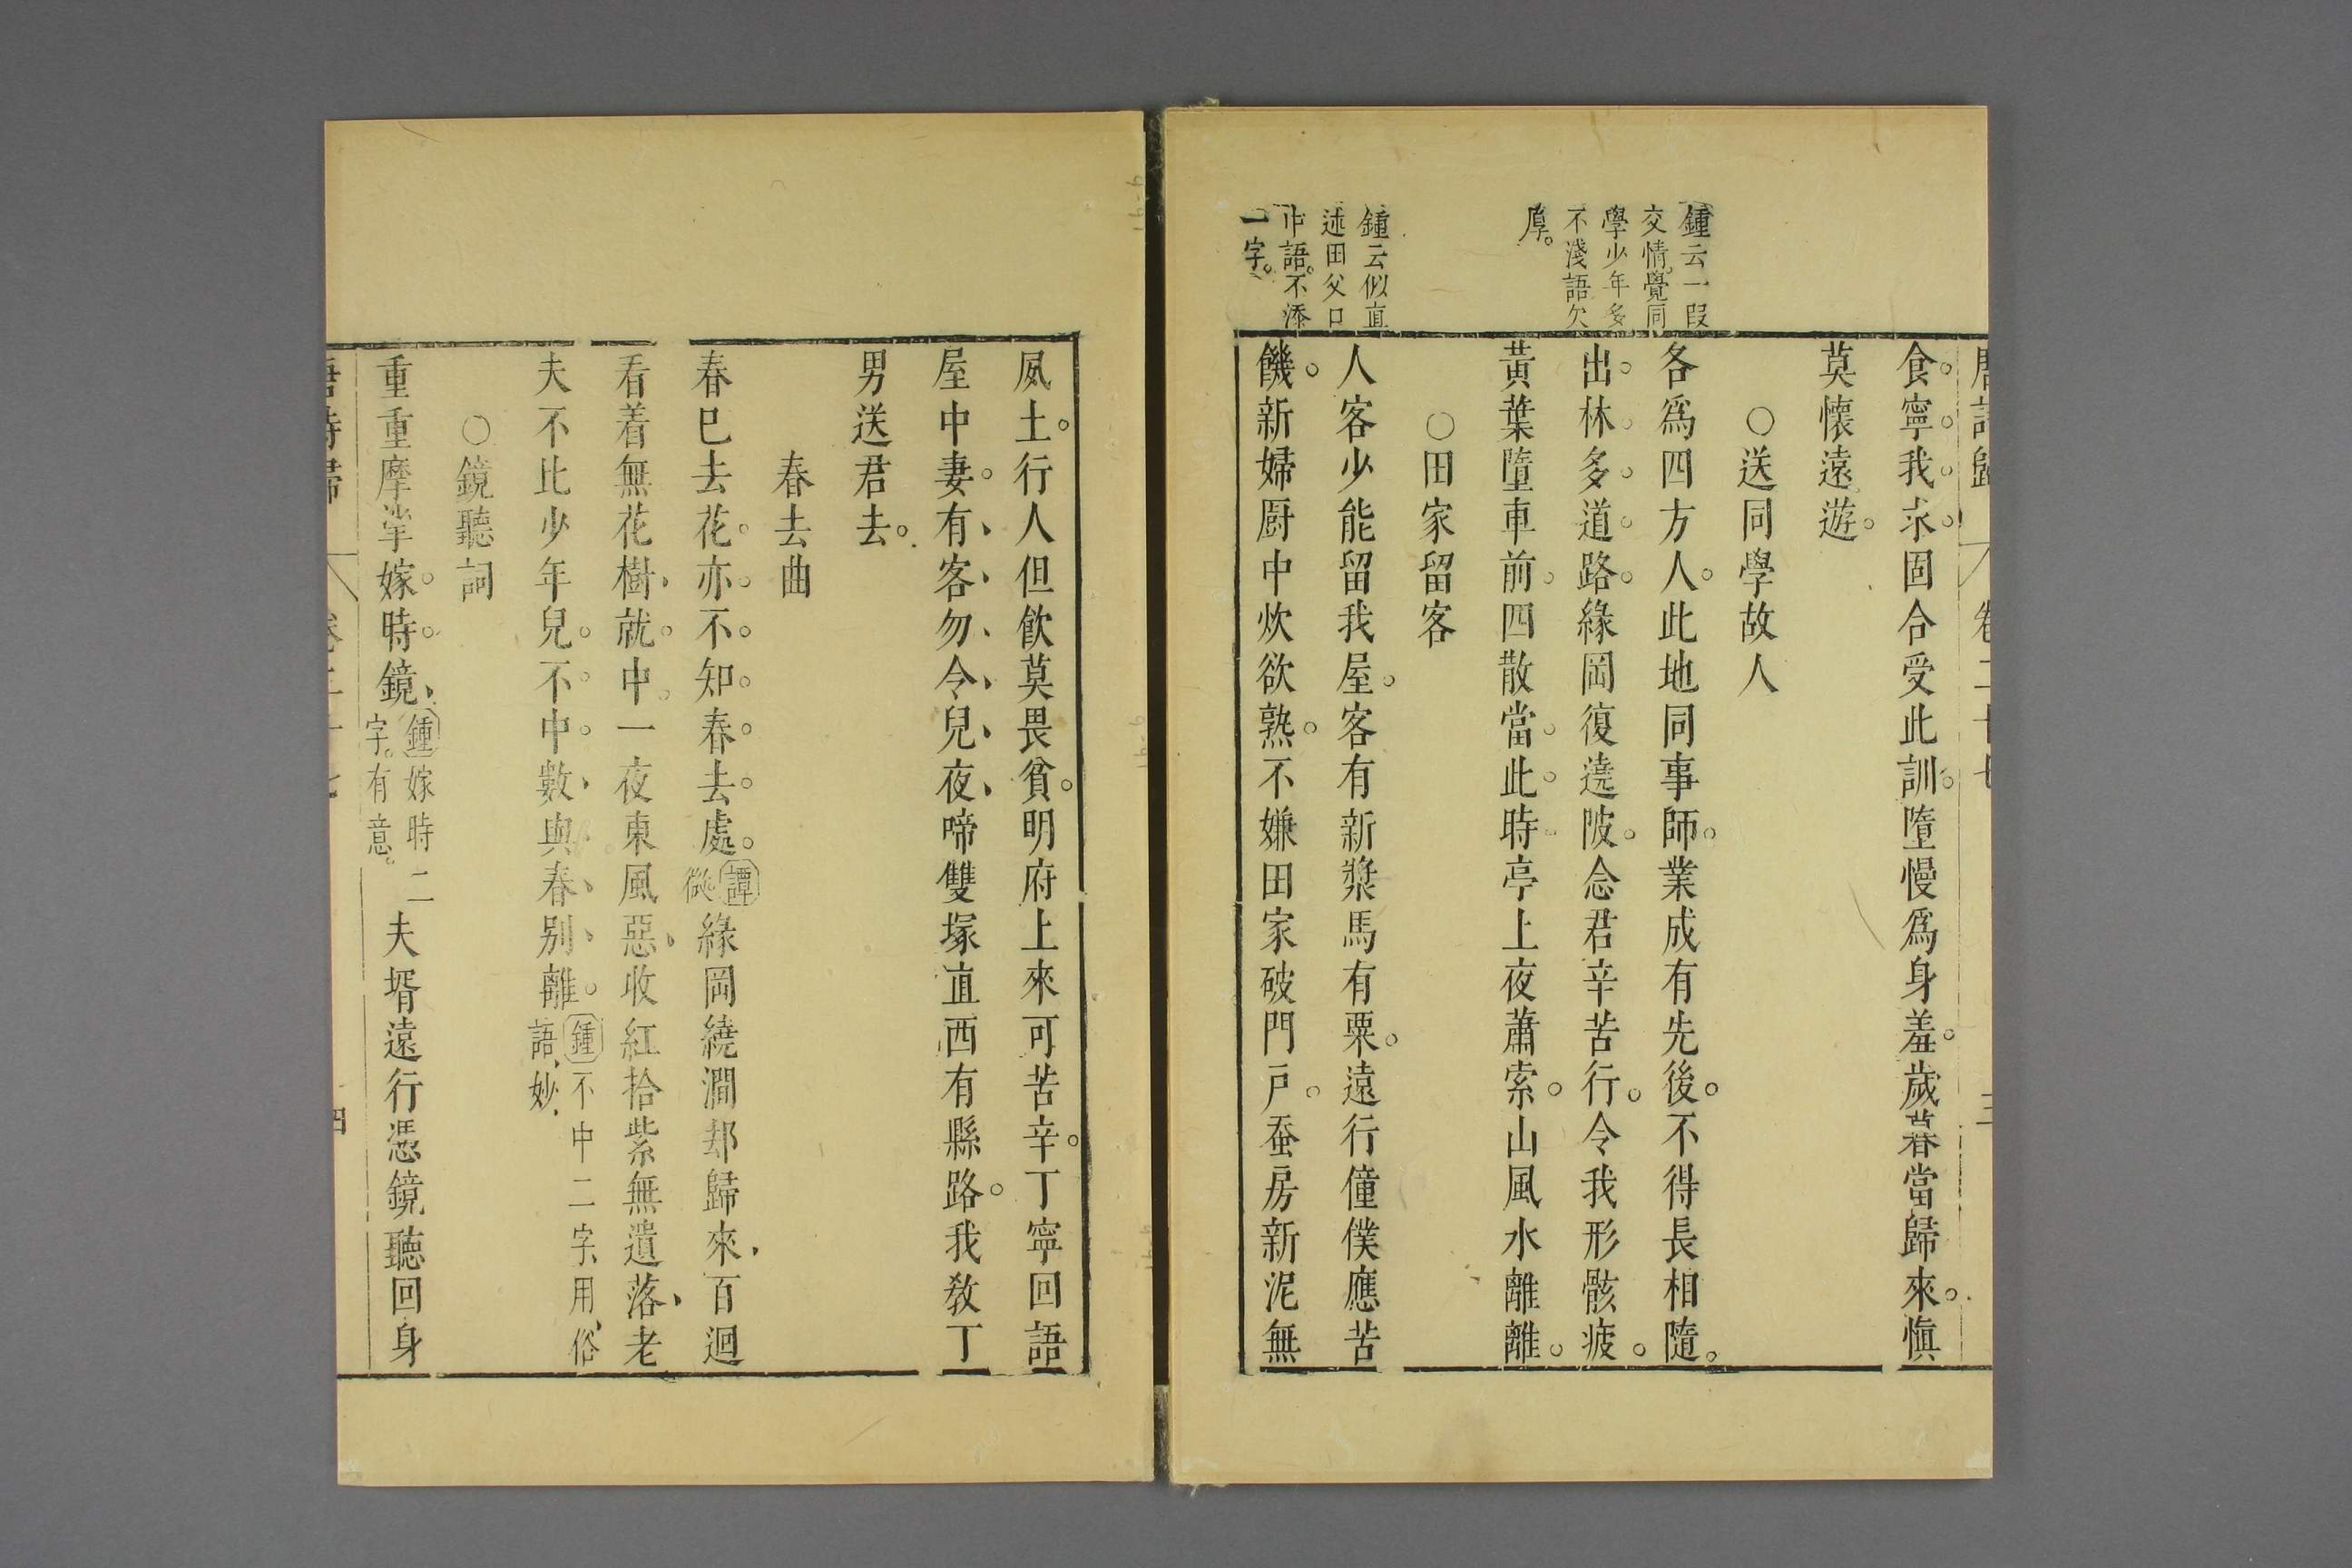 唐詩歸 卷二十七 三
食。寧。我。求。固合受此訓。墮慢爲身羞。歲暮當歸來。愼
莫懷遠遊。
○送同學故人
各爲四方人。此地同事師。業成有先後。不得長相隨。
出。林。多。道。路。緣岡復遶陂。念君辛苦行。令我形骸疲。
黃葉墮車前。四散當。此。時。亭上夜蕭索。山風水離離。
○田家留客
人客少能留我屋。客有新漿馬有粟。遠行僮僕應苦
饑。新婦厨中炊欲熟。不嫌田家破門戸。蚕房新泥無
鍾云一叚
交情。覺同
學少年多
不淺語欠
厚。
鍾云似直
述田父口
中語。不添
一字。
風土。行人但飲莫畏貧。明府上來可苦辛。丁寧回語
屋中妻。有、客、勿、令、兒、夜、啼雙塚直西有縣路。我敎丁
男送君去。
春去曲
春已去花。亦。不。知。春。去。處。譚
縱緣岡繞澗却歸來、百迴
看着無花樹、就。中。一夜東風惡、收紅拾紫無遺落、老
夫不比少年兒。不。中。數、與、春、別、離。鍾不中二字、用、俗
語、妙、
○鏡聽詞
重重摩挲嫁。時。鏡、鍾嫁時二
字。有意。夫壻遠行憑鏡聽回身
唐詩歸 卷二十七 四